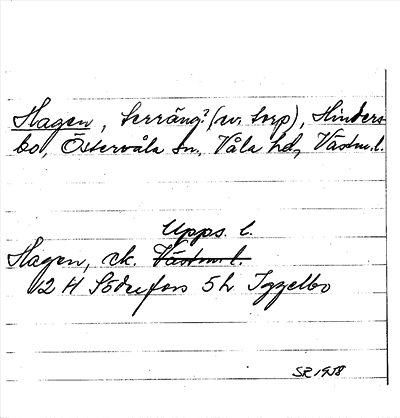 Hagen, terräng? (ur torp), Hinders-
bo, Östervåla sn, Våla hd, Västm. l.
Upps. l.
Hagen, ek. Västm. l.
12 H Söderfors 5 h Iggelbo
SR 1958